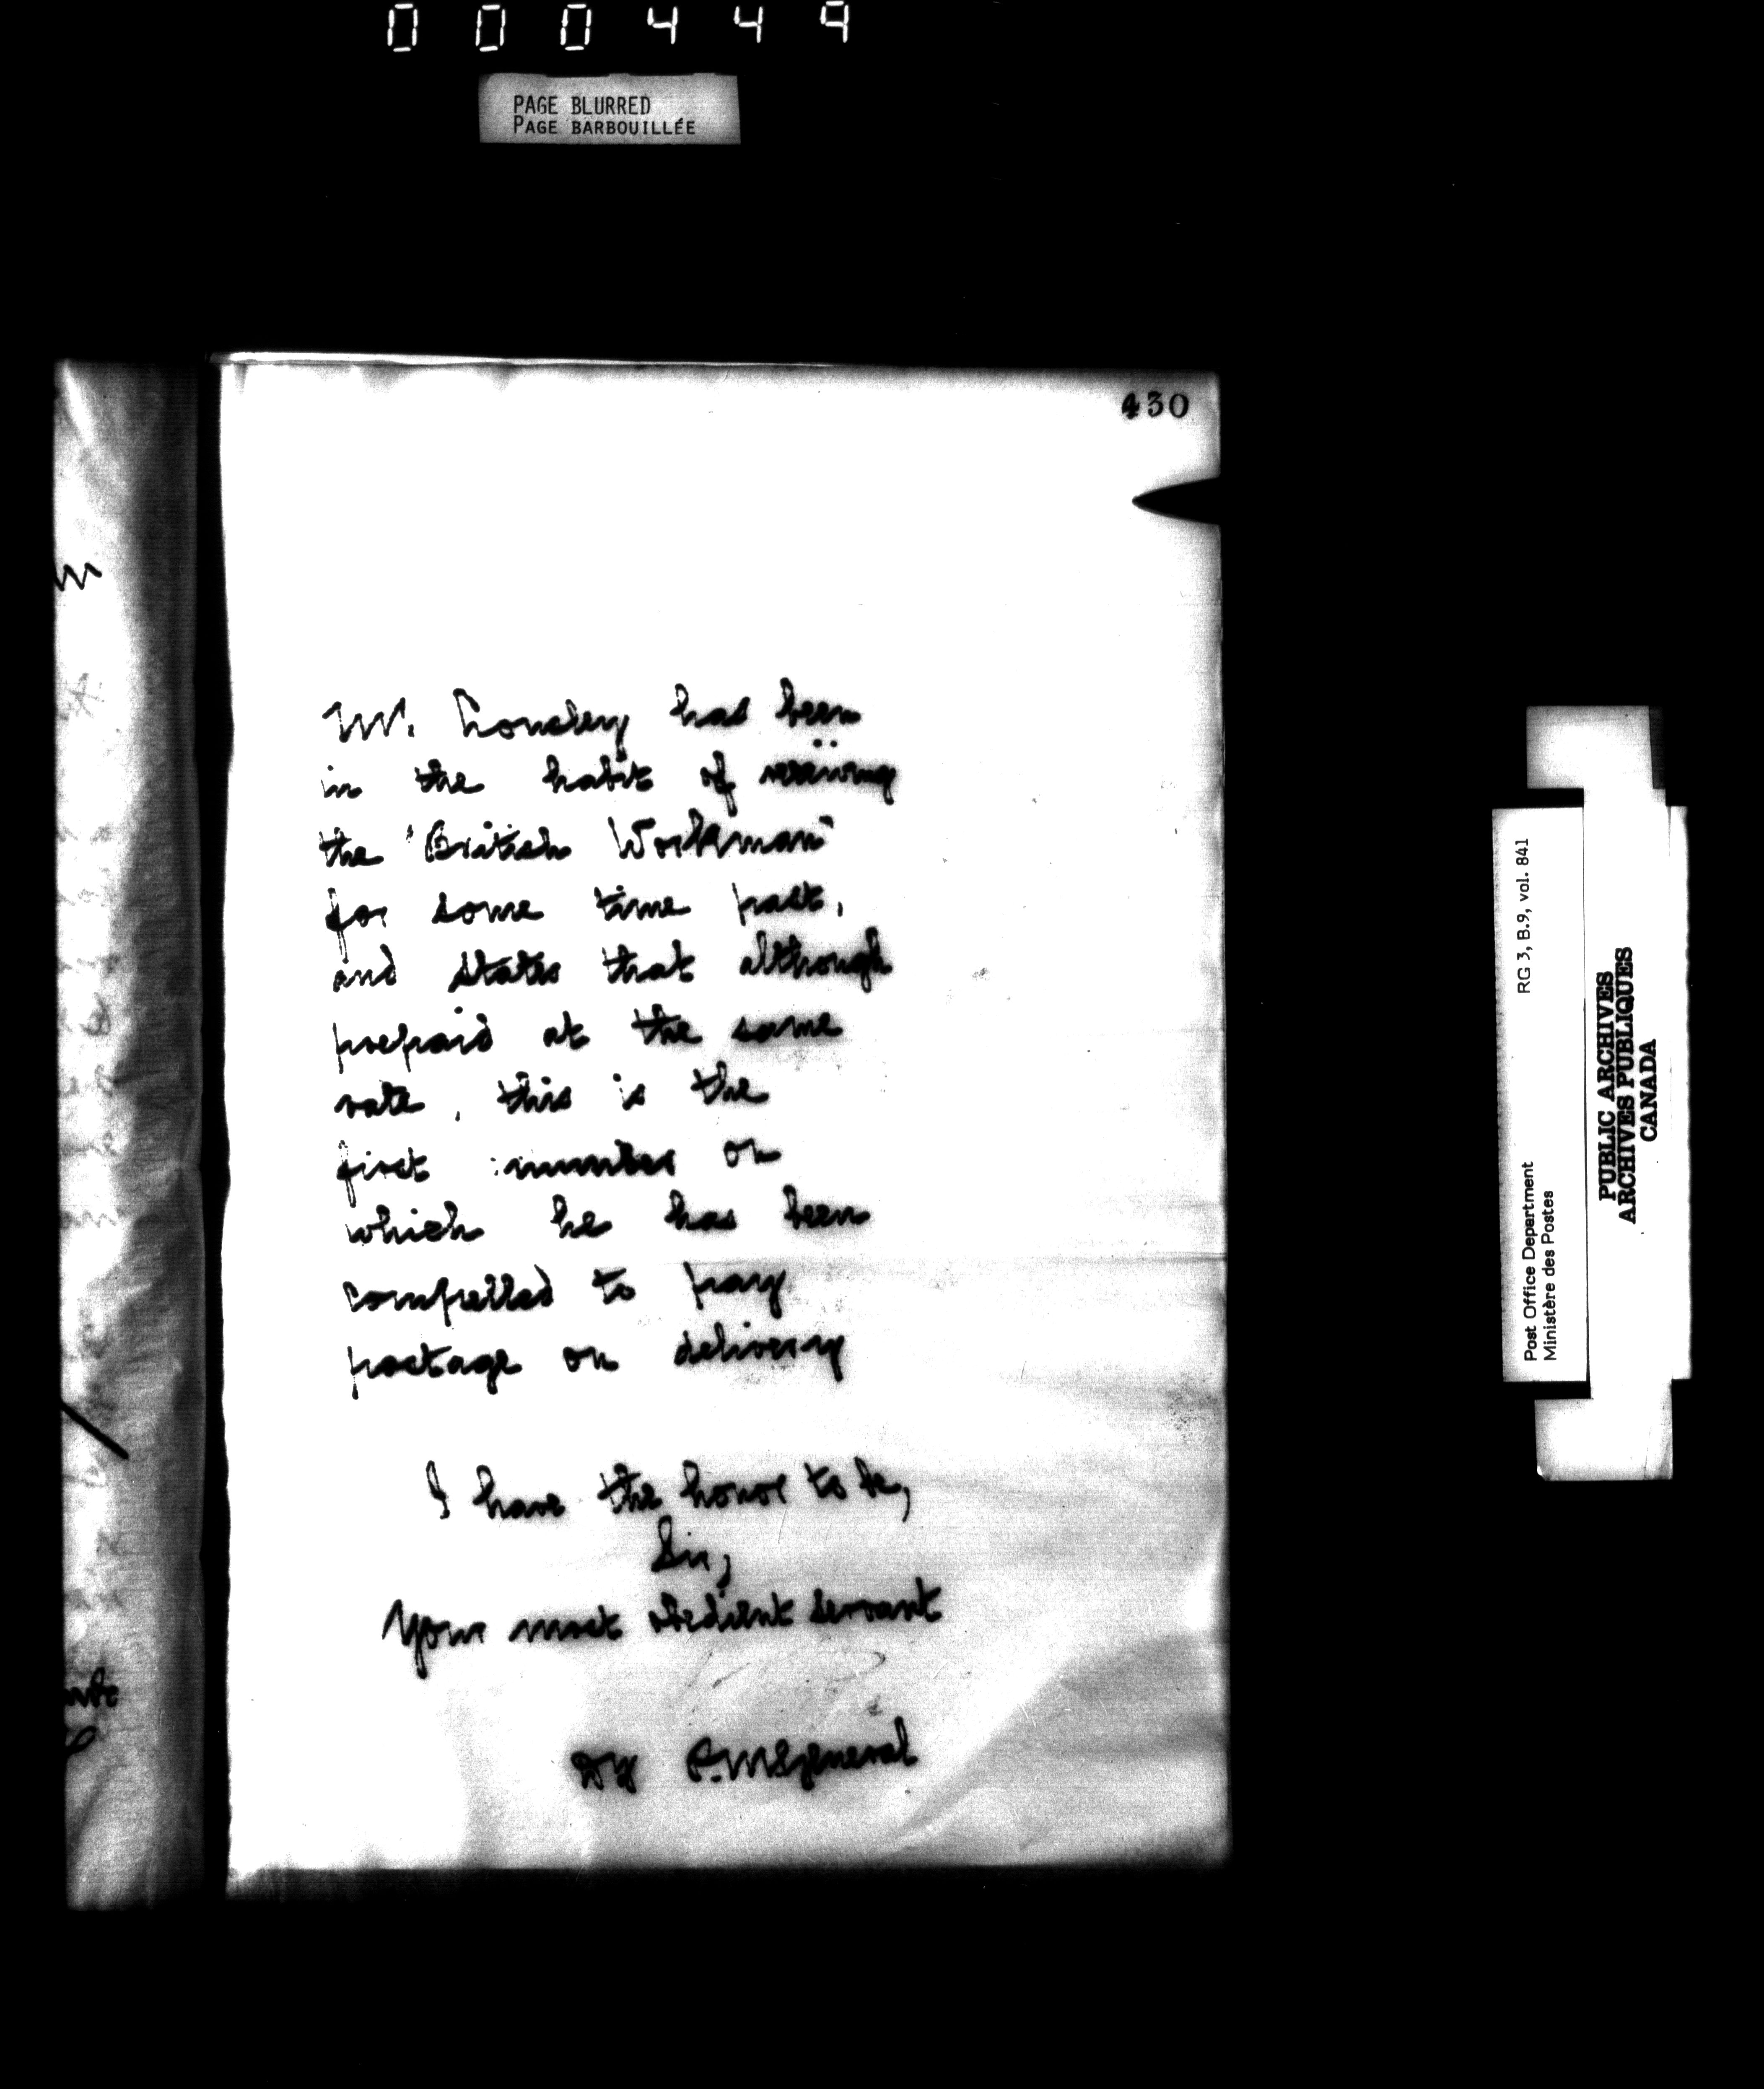 000449
PAGE BLURRED
PAGE BARBOUILLÉE
430
Mr. has been
in the habit of receiving
the "British Workman"
for some time past,
and states that although
prepaid at the same
rate, this is the
first number on
which he has been
compelled to pay
postage on delivery
I have the honor to be,
Sir,
Your most obedient servant
Dy P.M.General
RG 3, B.9, vol. 841
Post Office Department
Ministère des Postes
PUBLIC ARCHIVES
ARCHIVES PUBLIQUES
CANADA